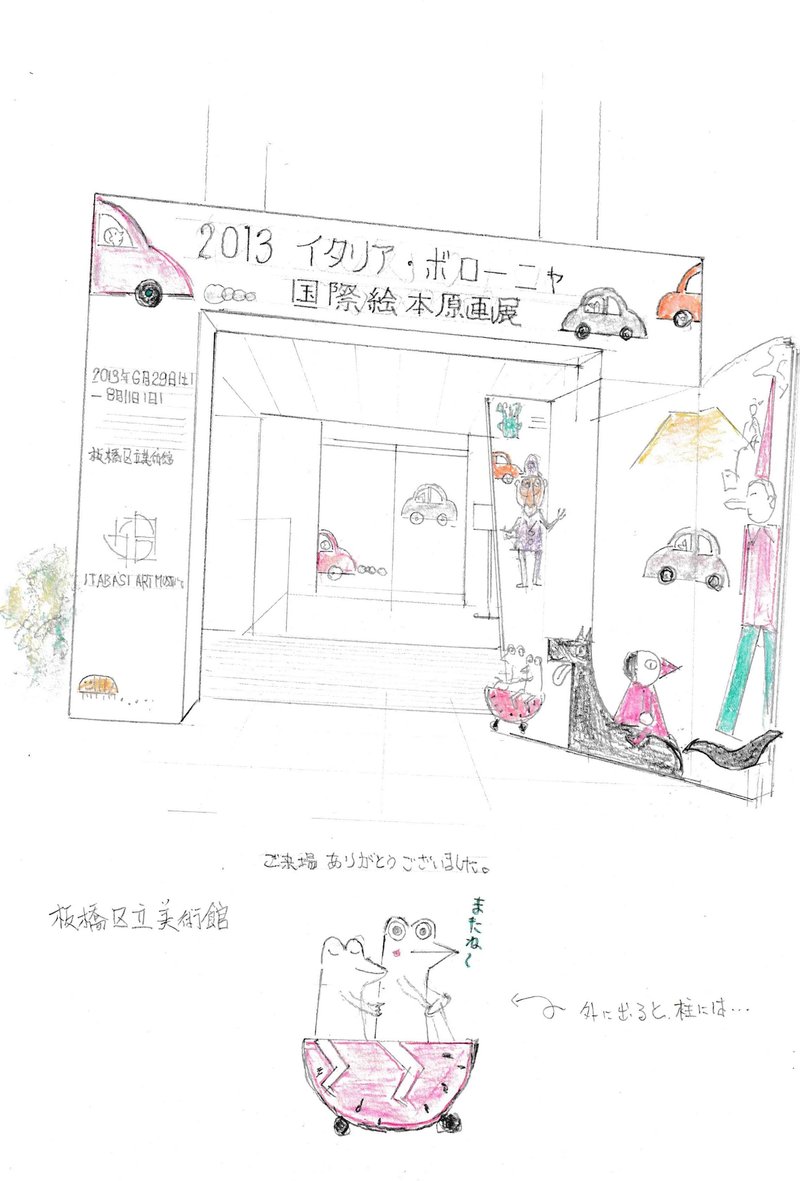 2013 イタリア・ボローニャ
国際絵本原画展
2013年6月29日(土)
－8月11日(日)
板橋区立美術館
ITABASI ART MUSEUM
ご来場 ありがとうございました。
板橋区立美術館
またね〜
外に出ると、柱には…